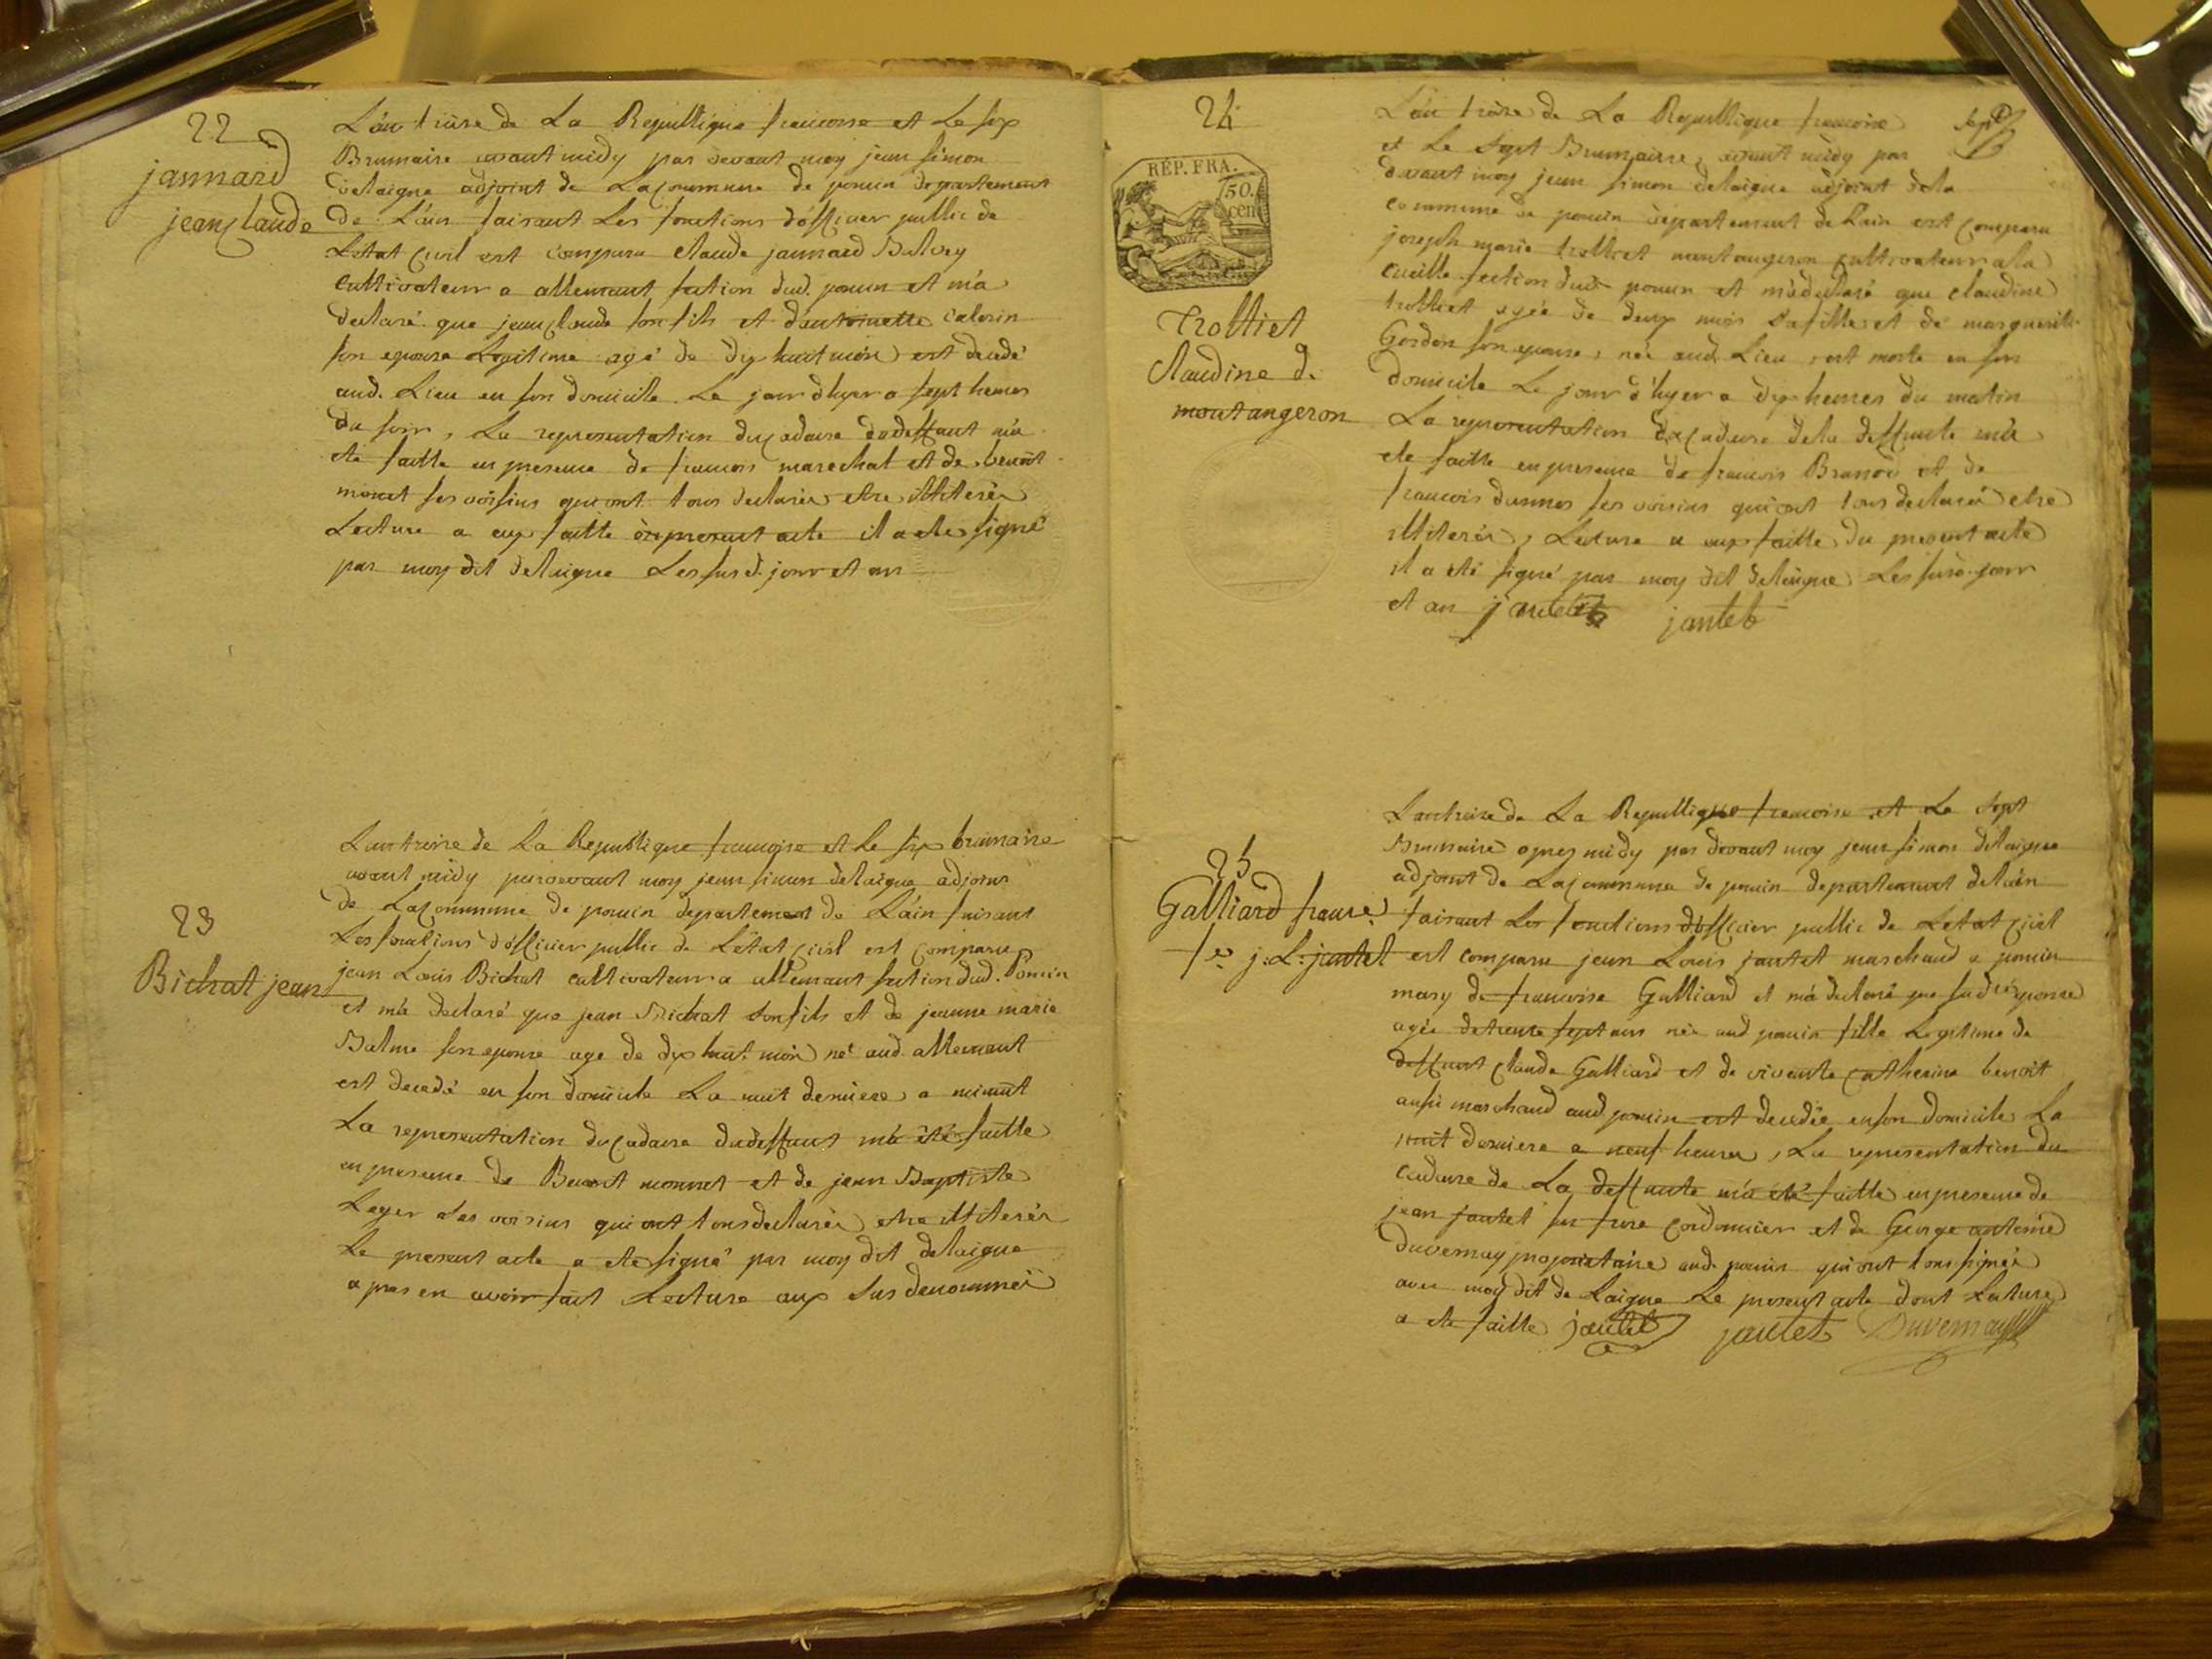 22
jannard
jean Claude
L'an treize de La Republique francoise et Le six
Brumaire avant midy par devant moy jean simon
delaigue adjoint de La commune de poncin departement
de L'ain faisant Les fonctions d'officier public de
Letat Civil est comparu Claude jannard Balvey
cultivateur a allemant section dud. poncin et m'a
declaré que jean Claude son fils et d'antoinette
son epouse Legitime agé de dix huit mois est decedé
aud. Lieu en son domicile Le jour d'hyer a sept heures
du soir, La representation du cadavre dudeffunt m'a
ete faitte en presence de francois marechal et de benoit
monet ses voisins qui ont tous declarés etre illiterés
Lecture a eux faitte du present acte il a ete signé
par moy dit delaigue Les susd. jour et an
23
Bichat jean
L'an treize de La Republique francoise et Le six brumaire
avant midy pardevant moy jean simon delaigue adjoint
de La Commune de poncin departement de L'ain faisant
Les fonctions d'officier public de Létat Civil est Comparu
jean Louis Bichat cultivateur a allemant section dud. Poncin
et m'a declaré que jean Bichat son fils et de jeanne marie
Balme son epouse age de dix huit mois né aud. allemant
est decedé en son domicile La nuit derniere a minuit
La representation du Cadavre dudeffunt m'a été faitte
en presence de Benoit monnet et de jean Baptiste
Leger ses voisins qui ont tous declarés etre illiterés
Le present acte a ete signé par moy dit delaigue
apres en avoir fait Lecture aux sus denommés
24
RÉP. FRA.
50.
cen
Trolliet
Claudine d.
montangeron
L'an treize de La Republique francoise
et Le sept Brumaire, avant midy par
devant moy jean simon delaigue adjoint dela
commune de poncin departement de Lain est Comparu
joseph marie trolliet montangeron cultivateur a la
cueille section dud. poncin et m'a declaré que claudine
trolliet agée de deux mois sa fille et de marguerite
Gordon son epouse, née aud. Lieu, est morte en son
domicile Le jour d'hyer a dix heures du matin
La representation du Cadavre dela deffunte m'a
ete faitte en presence de francois Brunod et de
francois dunnes ses voisins qui ont tous declarés etre
illiterés, Lecture a eux faitte du present acte
il a été signé par moy dit delaigue Les susd. jour
et an jantet jantet
25
Galliard franse.
fe. j. L. jantet
L'an treize de La Republique francoise et Le sept
Brumaire apres midy par devant moy jean simon delaigue
adjoint de La Commune de poncin departement de lain
faisant Les fonctions d'officier public de Letat Civil
est comparu jean Louis jantet marchand a poncin
mary de francoise Galliard et m'a declaré que sad. epouse
agée de trente sept ans née aud poncin fille Legitime de
deffunt Claude Galliard et de vivante Catherine benoit
aussi marchand aud poncin est decedée en son domicile La
nuit derniere a neuf heures, La representation du
cadavre de La deffunte m'a été faitte en presence de
jean jantet son frere Cordonnier et de George antoine
Duvernay proprietaire aud. poncin qui ont tous signés
avec moy dit de Laigue Le present acte dont Lecture
a ete faitte jantet jantet Duvernay